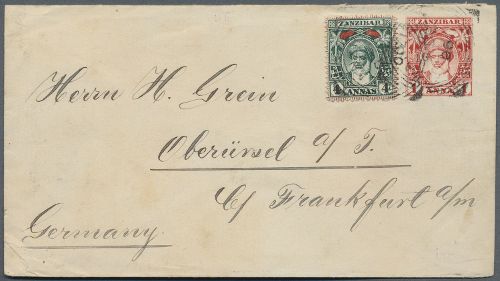 ZANZIBAR
4 ANNAS 4
ZANZIBAR
1 ANNA 1
Herrn H. Grein
Oberürsel a/T.
C/ Frankfurt a/m
Germany.